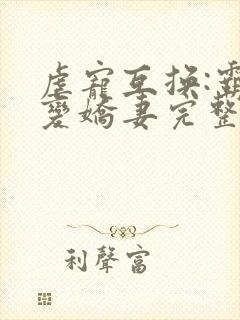 虐寵互换:霸
愛嬌妻完整
利聲富